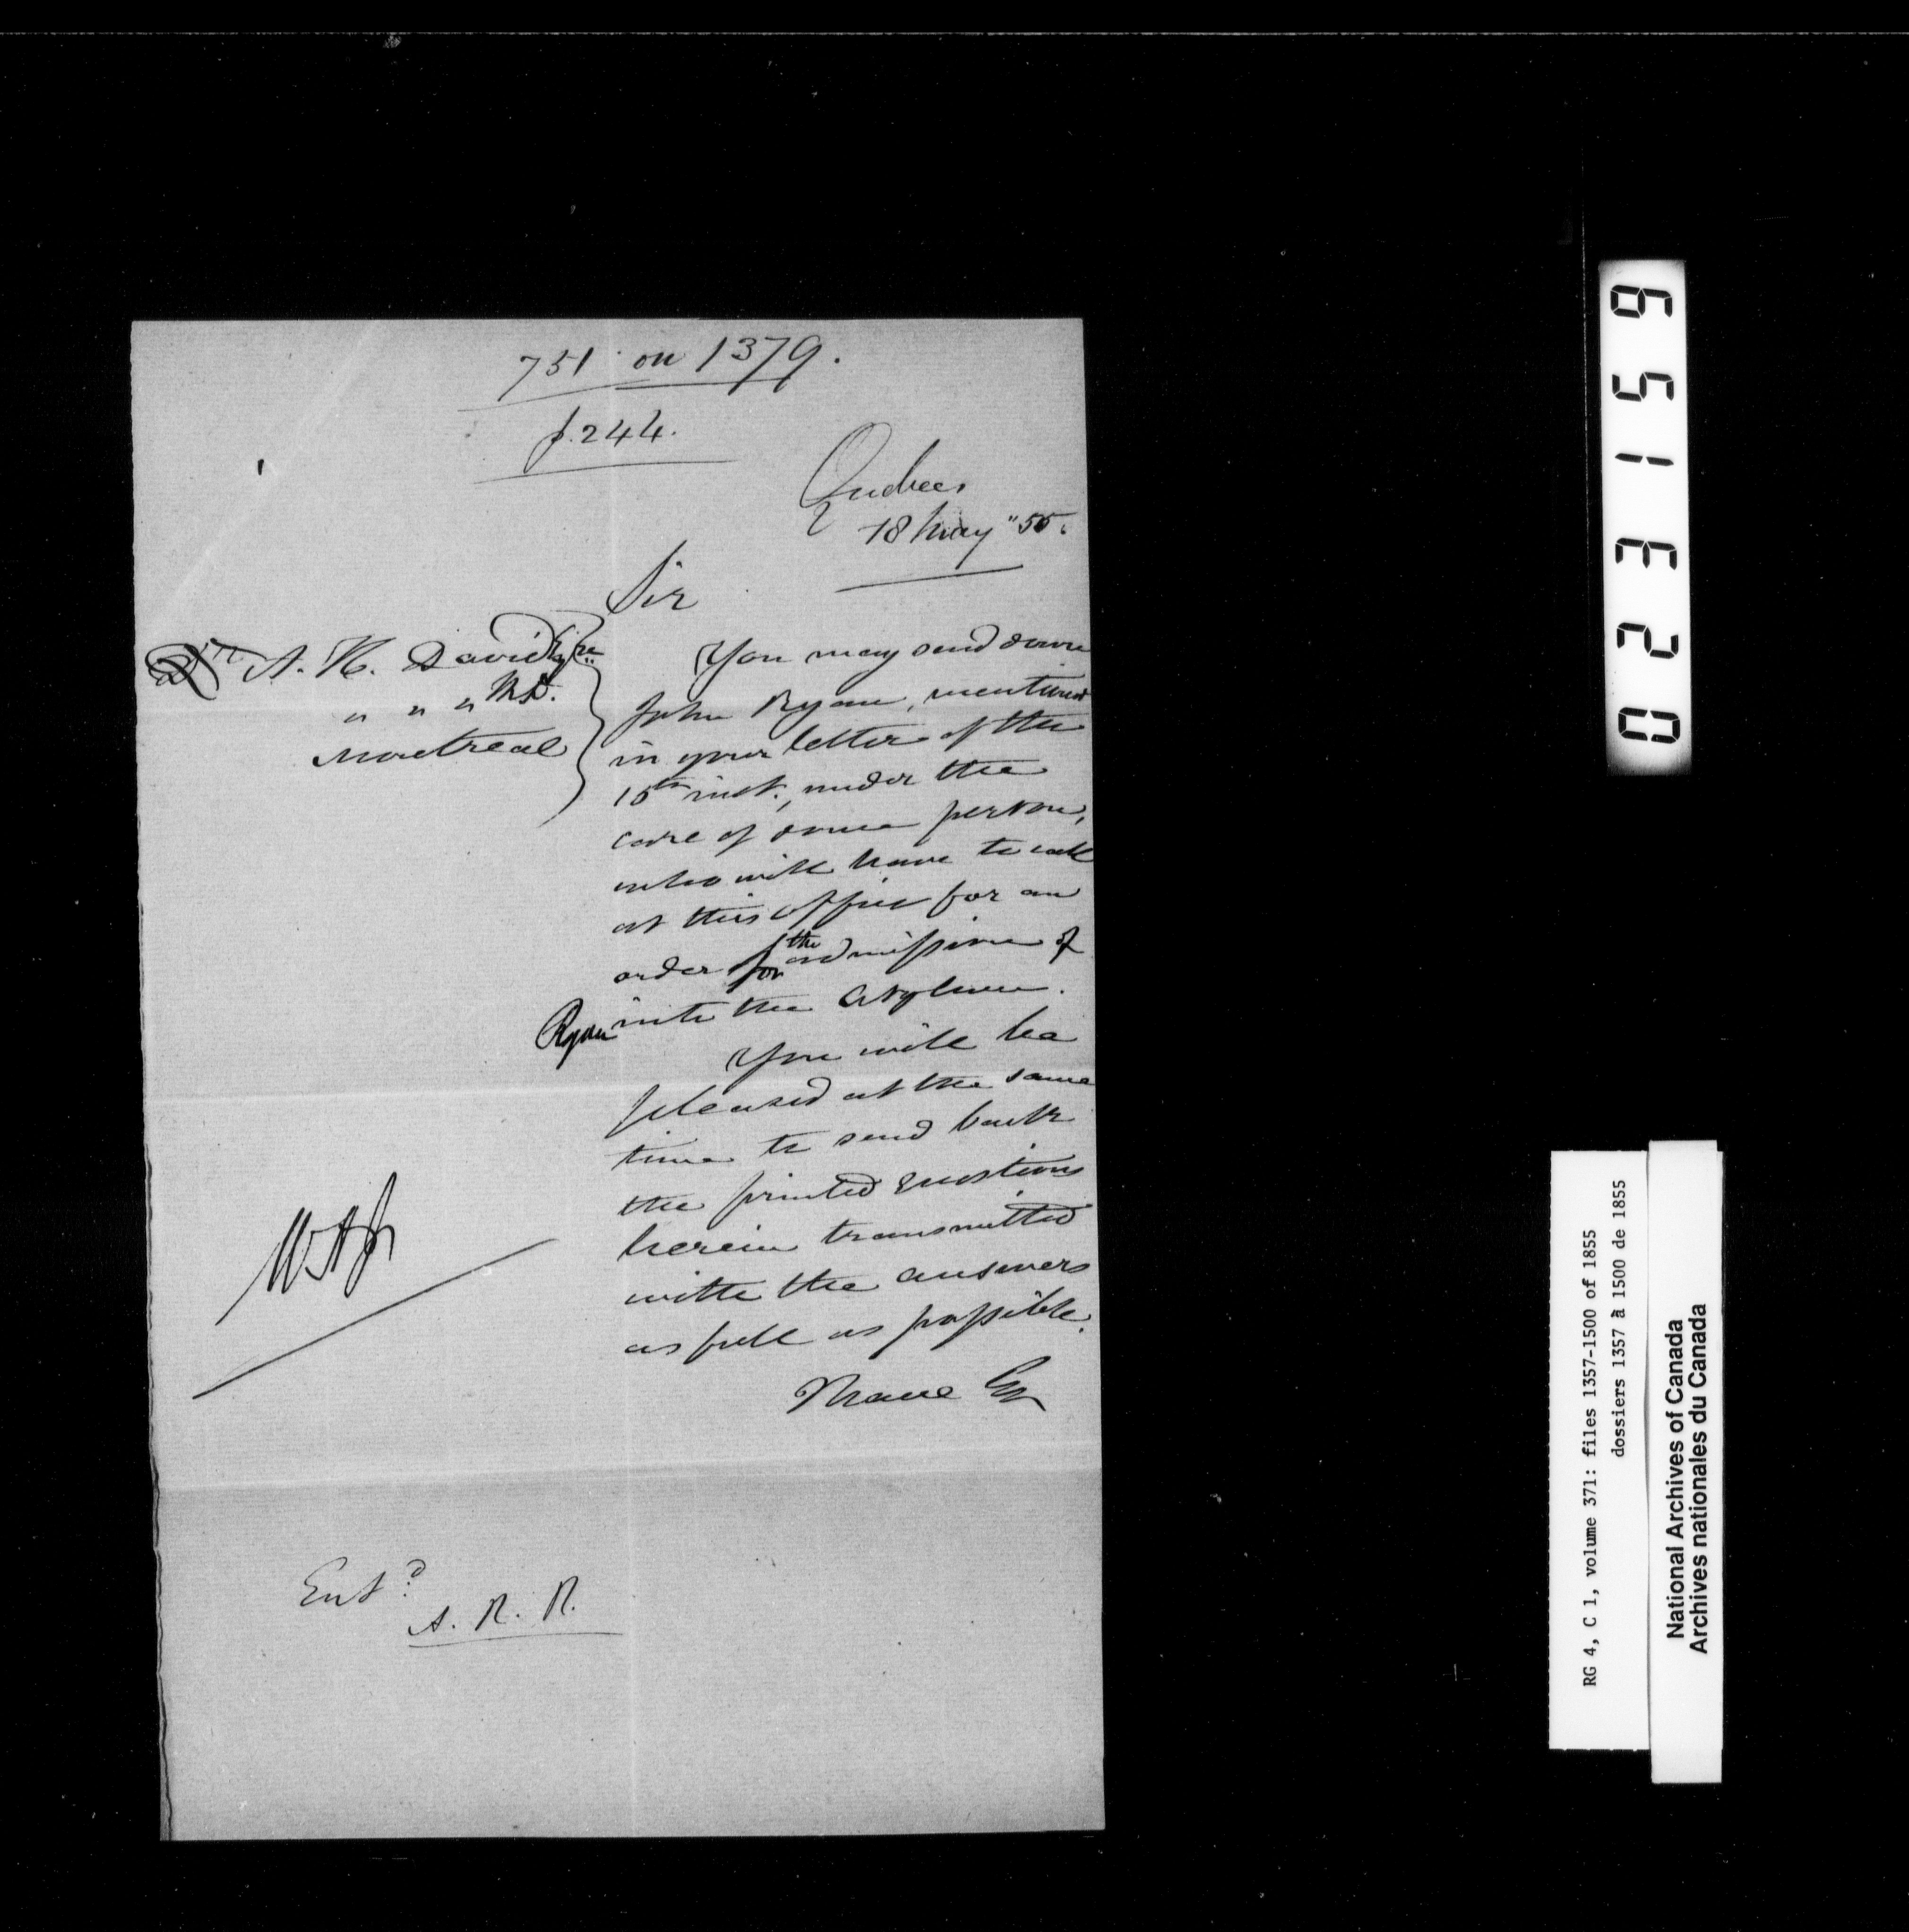 751 on 1379.
p. 244.
Quebec,
18 May "55.
Sir
A. H. David Esqre
" " " M.D.
Montreal
You may send down
John Ryan, mentioned
in your letter of the
15th inst., under the
care of some person,
who will have to call
at this office for an
order for the admission of
Ryan into the Asylum.
You will be
pleased at the same
time to send back
the printed Questions
herein transmitted
with the answers
as full as possible.
I have &c
Entd.
A. R. R.
023159
RG 4, C 1, volume 371: files 1357-1500 of 1855
dossiers 1357 à 1500 de 1855
National Archives of Canada
Archives nationales du Canada